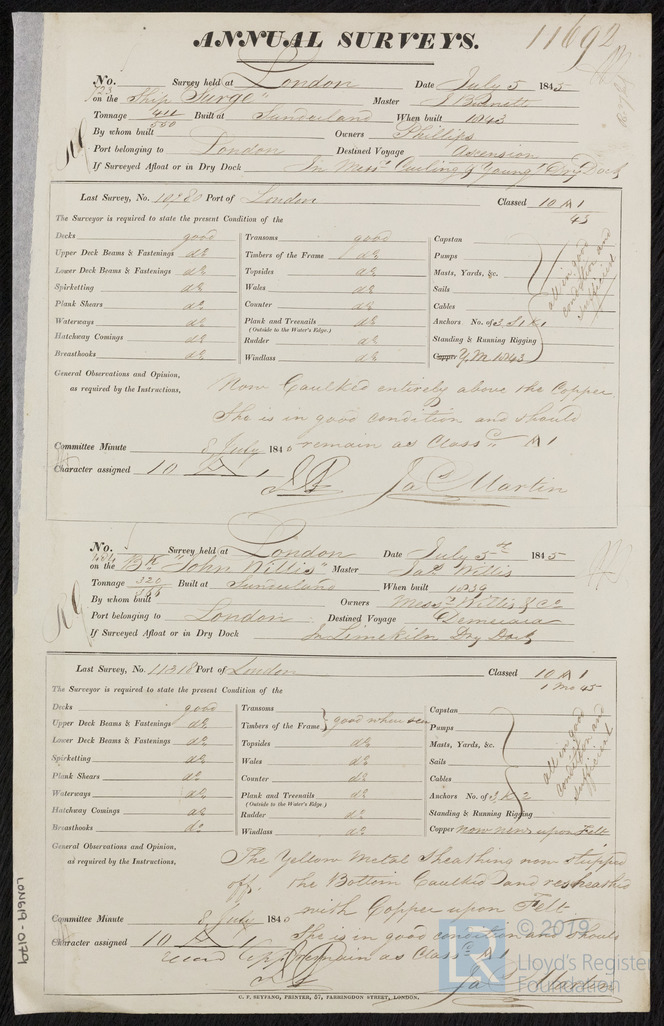 ANNUAL SURVEYS.
11692
No. Survey held at London Date July 5 1845
on the Ship "Surge" Master J Burnett
Tonnage 411 Built at Sunderland When built 1843
550
By whom built Owners Phillips
Port belonging to London Destined Voyage Ascension
If Surveyed Afloat or in Dry Dock In Messrs Curling & Young's Dry Dock
Last Survey, No. Port of London Classed 10 A 1
43
The Surveyor is required to state the present Condition of the
Decks good Transoms good Capstan
Upper Deck Beams & Fastenings do Timbers of the Frame do Pumps
Lower Deck Beams & Fastenings do Topsides do Masts, Yards, &c.
Spirketting do Wales do Sails
Plank Shears do Counter do Cables
Waterways do Plank and Treenails do Anchors No. of 3 S 1 K 1
(Outside to the Water's Edge.)
Hatchway Comings do Rudder do Standing & Running Rigging
Breasthooks do Windlass do Copper Y.M. 1843
all in good
condition and
sufficient
General Observations and Opinion,
as required by the Instructions,
Now Caulked entirely above the Copper
She is in good condition and should
remain as Classed A 1
Committee Minute 8 July 184
Character assigned 10 A 1
Jas Martin
No. Survey held at London Date July 5th 1845
on the Bk "John Willis" Master Jas Willis
Tonnage 320 Built at Sunderland When built 1839
By whom built Owners Messrs Willis & Co
Port belonging to London Destined Voyage Demerara
If Surveyed Afloat or in Dry Dock In Limekiln Dry Dock
Last Survey, No. 11318 Port of London Classed 10 A 1
1 Mo 45
The Surveyor is required to state the present Condition of the
Decks good Transoms Capstan
Upper Deck Beams & Fastenings do Timbers of the Frame good where seen Pumps
Lower Deck Beams & Fastenings do Topsides do Masts, Yards, &c.
Spirketting do Wales do Sails
Plank Shears do Counter do Cables
Waterways do Plank and Treenails do Anchors No. of 3 K 2
(Outside to the Water's Edge.)
Hatchway Comings do Rudder do Standing & Running Rigging
Breasthooks do Windlass do Copper now new upon Felt
all in good
condition and
sufficient
General Observations and Opinion,
as required by the Instructions,
The Yellow Metal Sheathing now stripped
off, the Bottom Caulked and resheathed
with Copper upon Felt
She is in good condition and should
remain as Classed A 1
Committee Minute 8 July 184
Character assigned 10 A 1
Jas Martin
C. F. SEYFANG, PRINTER, 57, FARRINGDON STREET, LONDON.
© 2019
LR
Lloyd's Register
Foundation